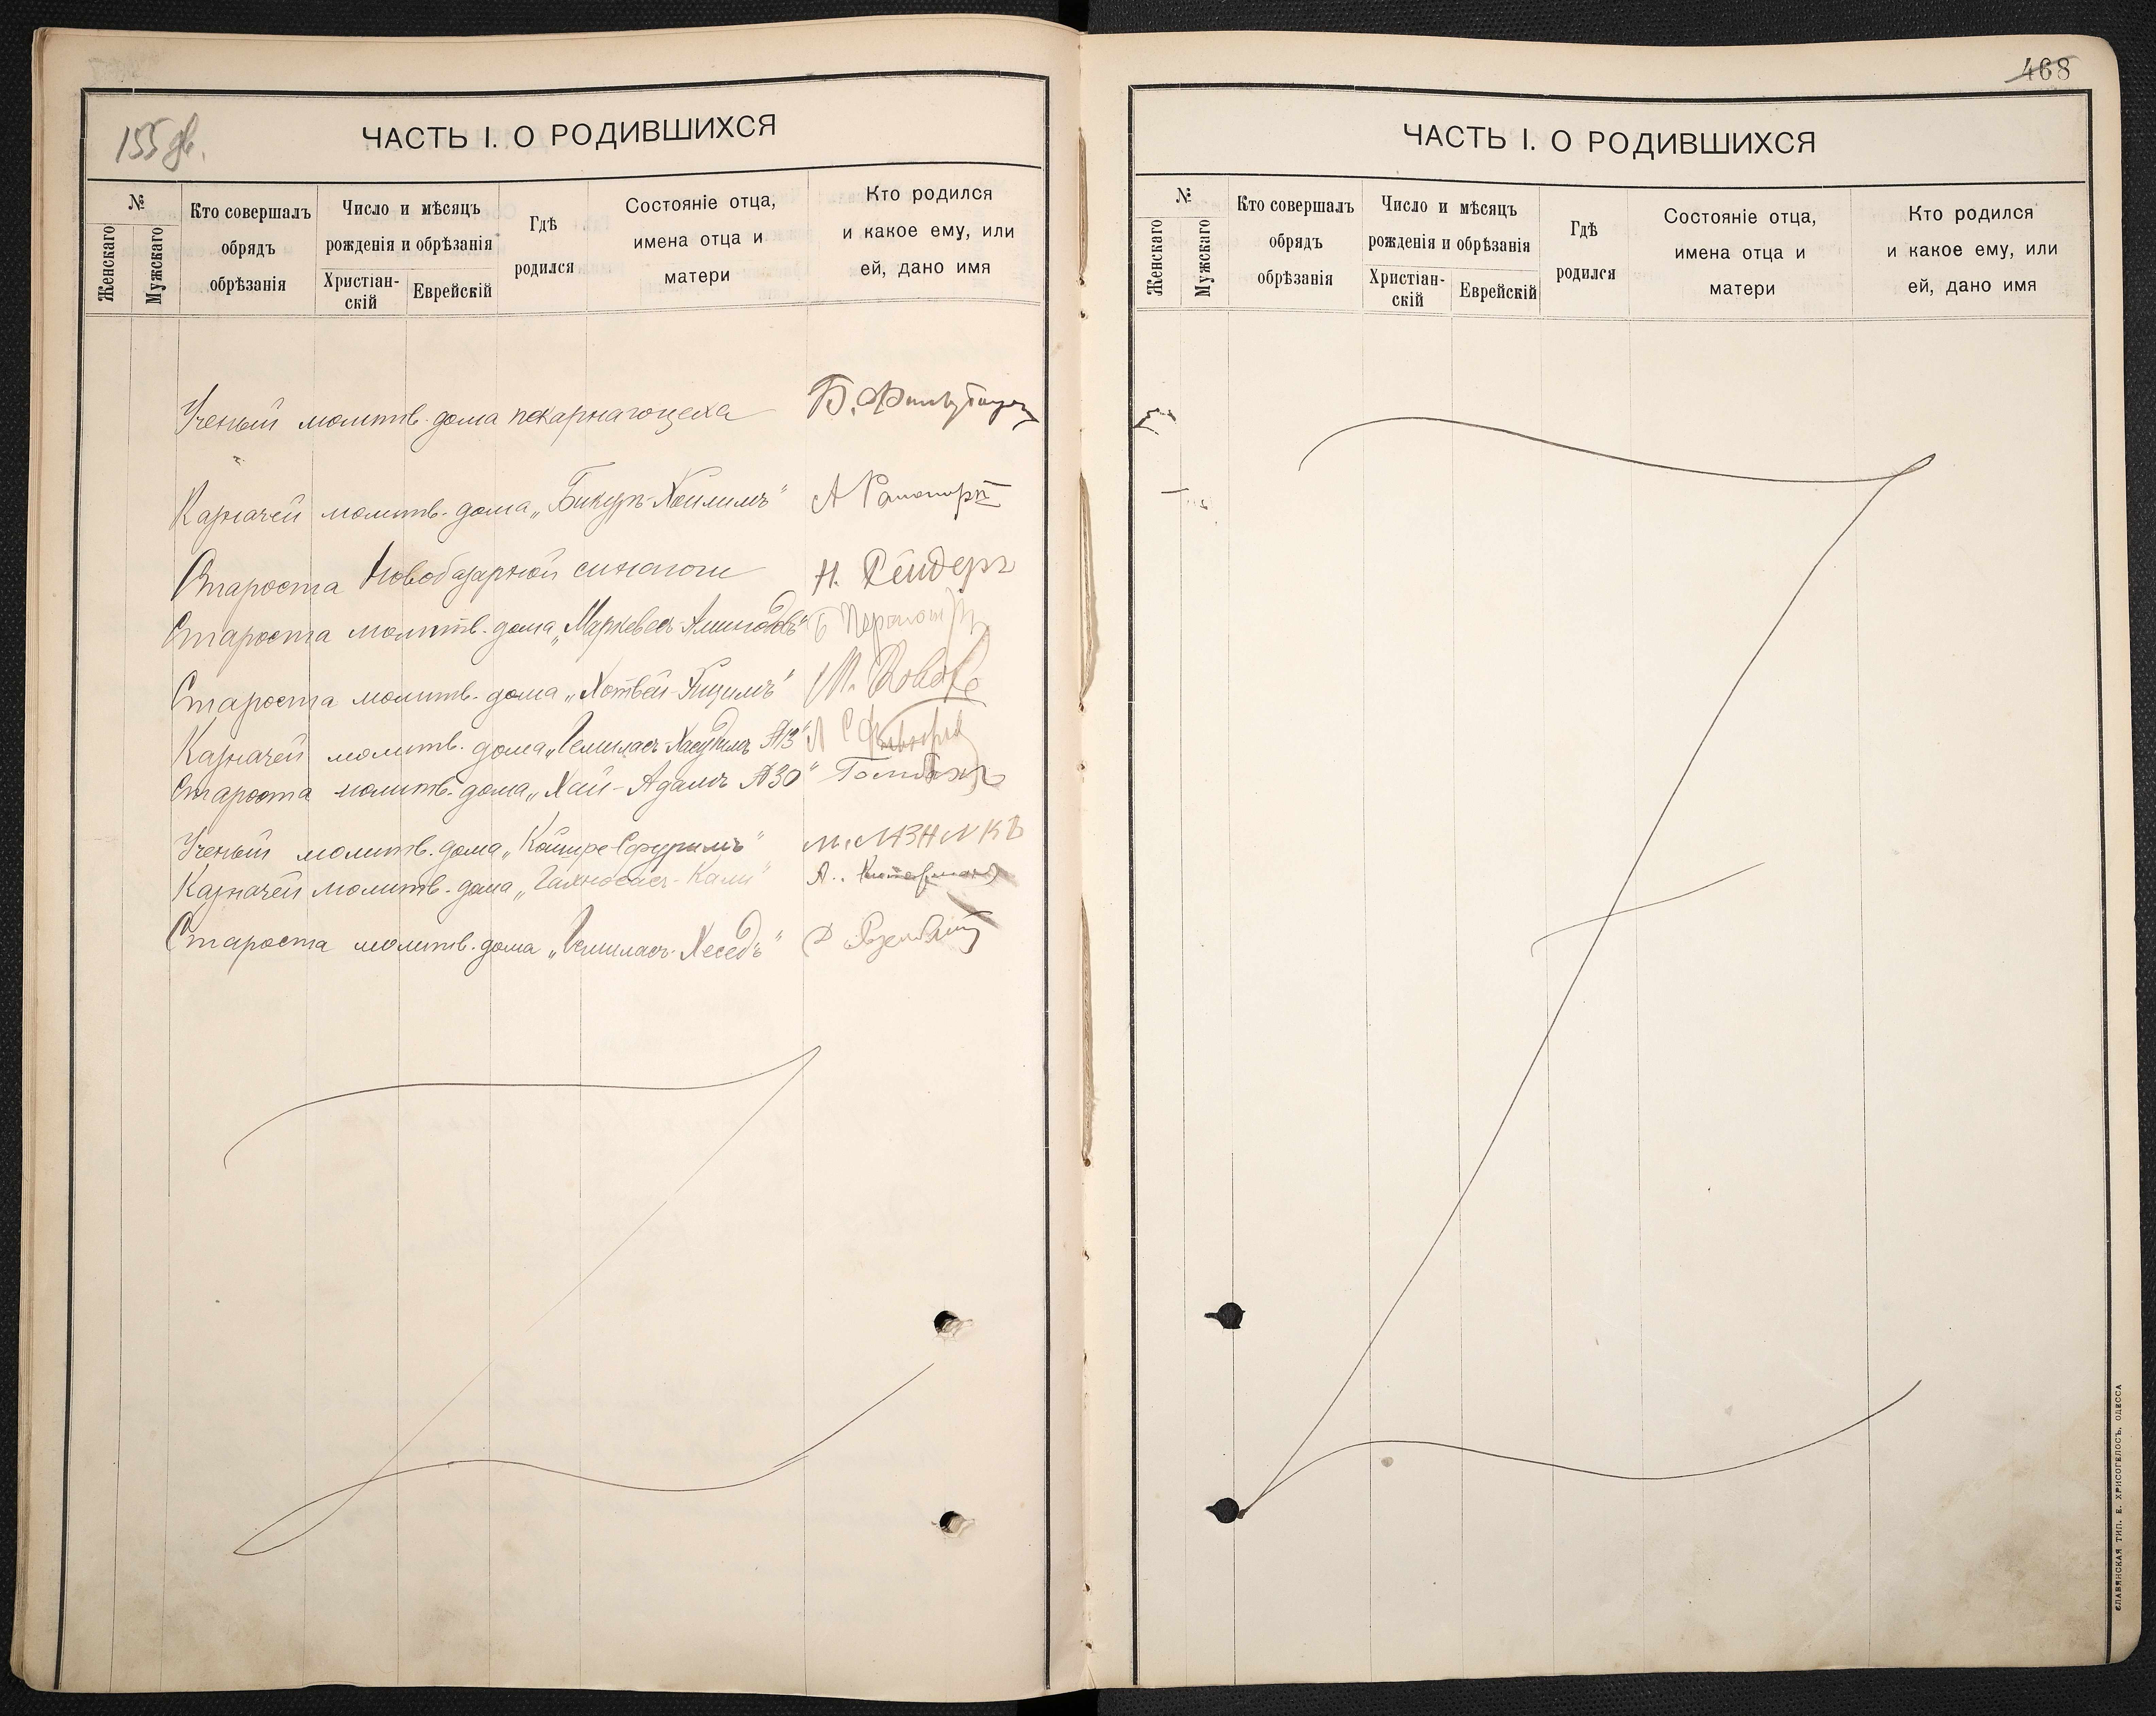 155 дв.
ЧАСТЬ I. О РОДИВШИХСЯ
№
Женскаго
Мужскаго
Кто совершалъ
обрядъ
обрѣзанія
Число и мѣсяцъ
рожденія и обрѣзанія
Христіан-
скій
Еврейскій
Гдѣ
родился
Состояніе отца,
имена отца и
матери
Кто родился
и какое ему, или
ей, дано имя
Ученый молитв. дома пекарнаго цеха Б.
Казначей молитв. дома „Бикуръ-Хойлимъ" А Рапопортъ
Староста Новобазарной синагоги Н. Рейдеръ
Староста молитв. дома
Староста молитв. дома
Казначей молитв. дома „Гемиласъ Хасудимъ №3"
Староста молитв. дома „Хай-Адамъ №30"
Ученый молитв. дома М. МАЗНИКЪ
Казначей молитв. дома „Гахносасъ-Кали" А.
Староста молитв. дома „Гемиласъ-Хеседъ"
468
ЧАСТЬ I. О РОДИВШИХСЯ
№
Женскаго
Мужскаго
Кто совершалъ
обрядъ
обрѣзанія
Число и мѣсяцъ
рожденія и обрѣзанія
Христіан-
скій
Еврейскій
Гдѣ
родился
Состояніе отца,
имена отца и
матери
Кто родился
и какое ему, или
ей, дано имя
СЛАВЯНСКАЯ ТИП. Е. ХРИСОГЕЛОСЪ. ОДЕССА